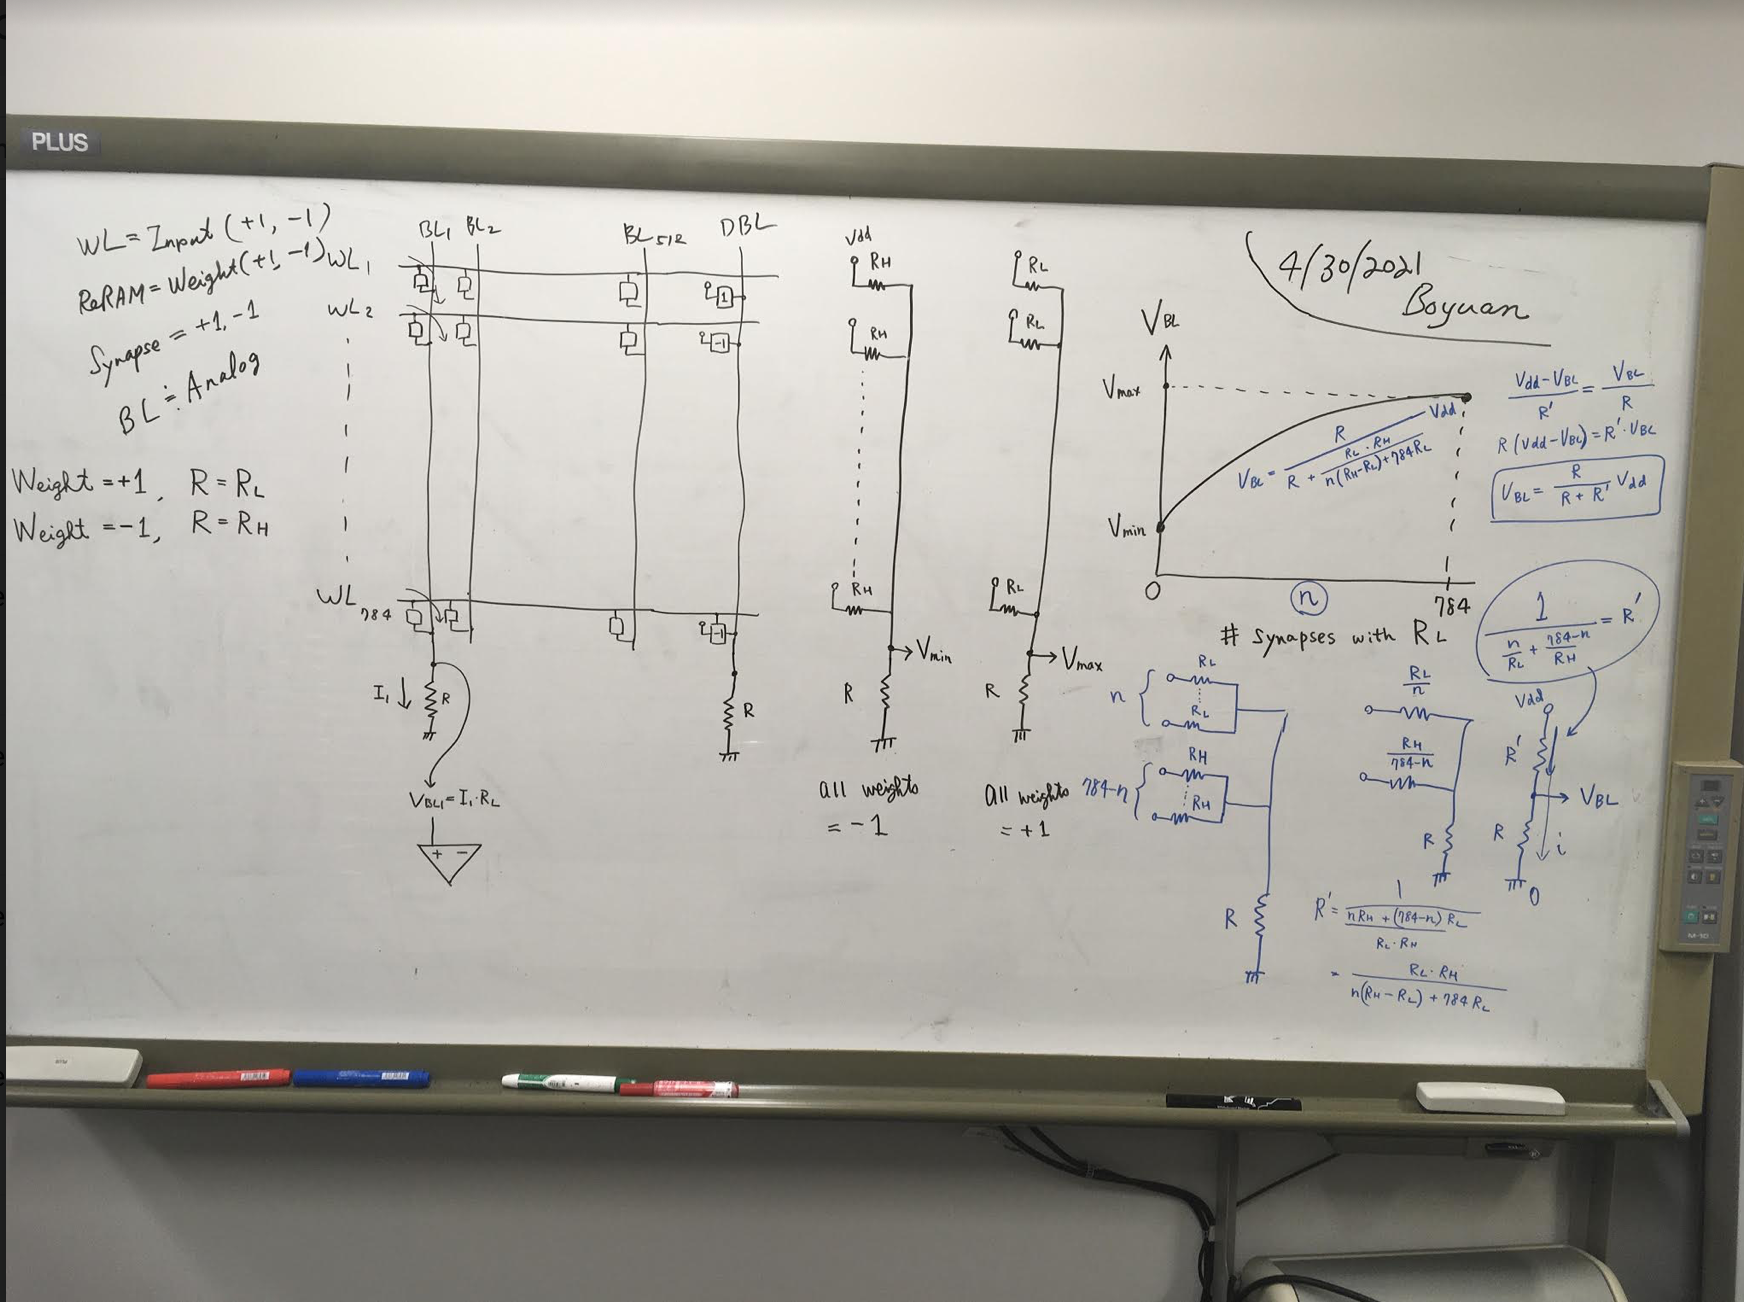 PLUS
WL = Input (+1, -1)
ReRAM = Weight (+1, -1)
Synapse = +1, -1
BL = Analog
Weight = +1, R = RL
Weight = -1, R = RH
BL1 BL2 BL512 DBL
WL1
1
WL2
-1
WL784
-1
I1 R
R
VBL1 = I1·RL
+ -
Vdd
RH
RH
RH
Vmin
R
all weights
= -1
RL
RL
RL
Vmax
R
all weights
= +1
4/30/2021
Boyuan
VBL
Vmax
Vmin
0
n
784
# synapses with RL
VBL = R / (R + (RL·RH / (n(RH-RL)+784RL))) Vdd
(Vdd-VBL)/R' = VBL/R
R(Vdd-VBL) = R'·VBL
VBL = R/(R+R') Vdd
1/(n/RL + (784-n)/RH) = R'
n
RL
RL
784-n
RH
RH
R
RL/n
RH/(784-n)
R
Vdd
R'
VBL
R
i
0
R' = 1/((nRH + (784-n)RL)/(RL·RH))
= RL·RH/(n(RH-RL) + 784RL)